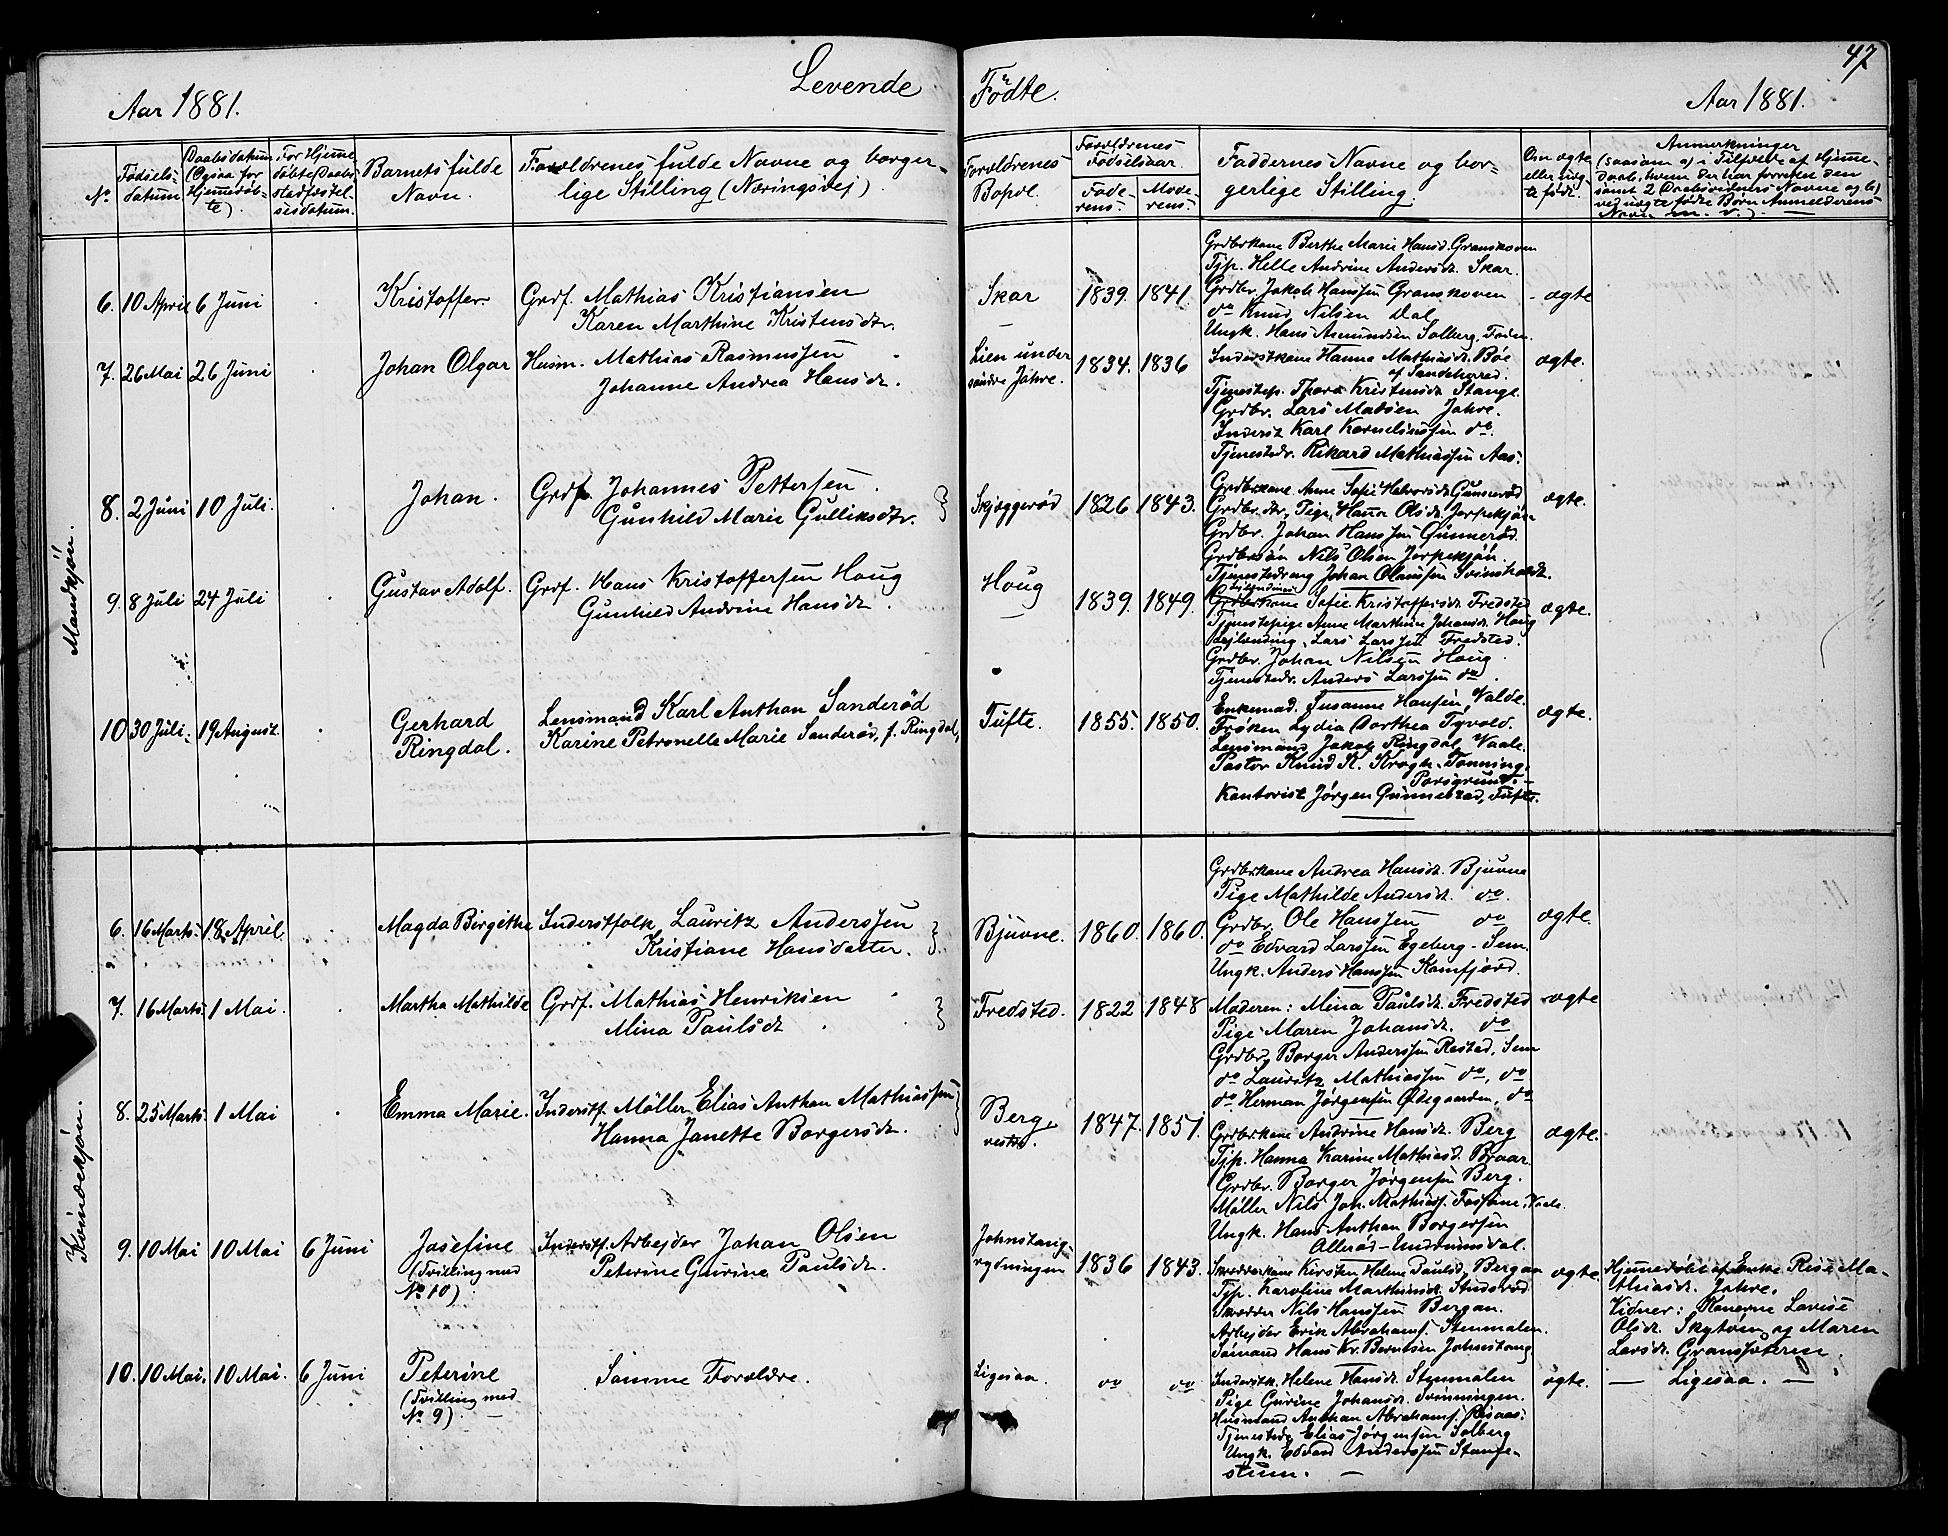 47
Levende Fødte.
Aar 1881. Aar 1881.
No.
Fødsels-
datum
Daabsdatum
(Ogsaa for
Hjemmedøb-
te).
For Hjemme-
døbte Daabs-
stadfæstel-
sesdatum.
Barnets fulde
Navn.
Forældrenes fulde Navne og borger-
lige Stilling (Næringsvej).
Forældrenes
Bopæl.
Forældrenes
Fødselsaar
Fade-
rens.
Mode-
rens.
Faddernes Navne og bor-
gerlige Stilling.
Om ægte
eller uæg-
te født.
Anmærkninger
(saasom a) i Tilfælde af Hjemme-
daab, hvem der har forrettet den
samt 2 Daabsvidners Navne og b)
ved uægte fødte Børn Anmelderens
Navn m. v.).
Mandkjøn.
6. 10 April 6 Juni Kristoffer. Grdf. Mathias Kristiansen
Karen Marthine Kristensdtr.
Skar 1839. 1841. ægte
Grdbrkone Berthe Marie Hansd. Granskoven
Tjp. Helle Andrine Andersdt. Skar.
Grdbr. Jakob Hanssen Granskoven
do Knud Nilsen Dal
Ungk. Hans Asmundsen Solberg, Foden.
7. 26 Mai 26 Juni Johan Olgar Husm. Mathias Rasmussen
Johanne Andrea Hansdt.
Lien under
søndre Jahre. 1834. 1836 ægte.
Inderstkone Hanna Mathiasdt. Bøe
af Sandeherred.
Tjenestep. Thora Kristensdt. Stange
Grdbr. Lars Madsen Jahre.
Inderst Karl Kornelinssen do.
Tjenestedr. Rikard Mathiassen Aas.
8. 2 Juni 10 Juli. Johan. Grdf. Johannes Pettersen.
Gunhild Marie Gulliksdtr.
Skjæggerød 1826 1843. ægte.
Grdbrkone Anne Sofie Halvorsdt. Gunnerød
Grdbr.dtr, Pige, Hanna Olsdt. Jerpekjøn
Grdbr. Johan Hanssen Gunnerød.
Grdbrsøn Nils Olsen Jerpekjøn.
Tjenestedreng Johan Olaussen Svinholdt.
9. 8 Juli 24 Juli Gustav Adolf. Grdf. Hans Kristoffersen Houg
Gunhild Andrine Hansdt.
Houg 1839. 1849. ægte.
Grdbrkone Sofie Kristoffersdt. Fredsted
Tjenestepige Anne Marthine Johansdt. Houg
Lejlænding, Lars Larssen Fredsted.
Grdbr. Johan Nilsen Houg.
Tjenestedr. Anders Larssen do.
10 30 Juli. 19 August. Gerhard
Ringdal.
Lensmand Karl Anthon Sanderød
Karine Petronelle Marie Sanderød, f. Ringdal,
Tufte. 1855. 1850. ægte.
Enkemad. Susanne Hansen, Valde.
Frøken Lydia Dorthea Tyvold.
Lensmand Jakob Ringdal, Vaale.
Pastor Knud K. Krogh-Tonning,
Porsgrund.
Kontorist Jørgen Gunnestad, Tufte.
Kvindekjøn.
6. 16 Marts. 18 April. Magda Birgithe Inderstfolk Lauritz Anderssen
Kristiane Hansdatter.
Bjuvne. 1860. 1860. ægte.
Grdbrkone Andrea Hansdt. Bjuvne
Pige Mathilde Andersdt. do.
Grdbr. Ole Hanssen do
do Edvard Larssen Egeberg - Sem.
Ungk. Anders Hanssen Kamfjord.
7. 16 Marts. 1 Mai. Martha Mathilde Grdf. Mathias Henriksen
Mina Paulsdt
Fredsted. 1822 1848 ægte
Moderen: Mina Paulsdt. Fredsted
Pige Maren Johansdt. do
Grdbr. Borger Anderssen Rested, Sem
do Lauritz Mathiassen do, do
do Herman Jørgensen Ødegaarden, do
8. 25 Marts. 1 Mai Emma Marie. Inderstf. Møller Elias Anthon Mathiassen
Hanna Janette Borgersdt.
Berg
vestre. 1847. 1851. ægte.
Grdbrkone Andrine Hansdt. Berg
Tjp. Hanna Karine Mathiasd. Braar.
Grdbr. Borger Jørgensen Berg.
Møller Nils Joh. Mathias. Fossane, Vaale.
Ungk. Hans Anthon Borgersen
Allerød - Undrumsdal.
9. 10 Mai 10 Mai 6 Juni Josefine
(Tvilling med
No 10).
Inderstf. Arbejder Johan Olsen
Peterine Gurine Paulsdt.
Johnstang-
rydningen 1836 1843. ægte.
Skrædderkone Kirsten Helene Paulsd. Bergan
Tjp. Karoline Marthinsdt. Studsrød
Skrædder Nils Hanssen Bergan.
Arbejder Erik Abrahams. Stenmalen.
Sømand Hans Kr. Berntsen Johnstang
Hjemmedøbt af Enke Rise Ma-
thiasdt. Jahre.
Vidner: Konerne Lovise
Olsdt. Skytøen og Maren
Larsdt. Gransæteren.
10. 10 Mai. 10 Mai. 6 Juni Peterine
(Tvilling med
No 9).
Samme Forældre.
Ligesaa. do do ægte. Ligesaa.
Inderstk. Helene Hansdt. Stenmalen
Pige Gurine Johansdt. Svinningen.
Husmand Anthon Abrahams. Risaas.
Tjenestedr. Elias Jørgensen Solberg
Ungk. Edvard Anderssen Stange-
stuen.